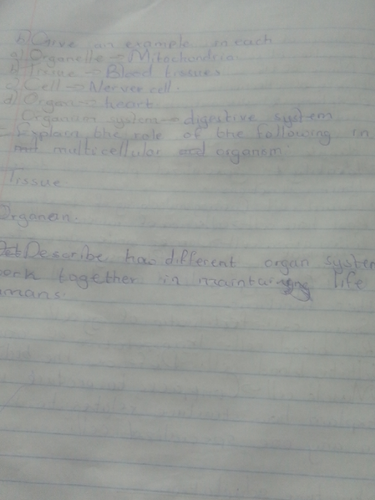 b) Give an example in each
a) Organelle -> Mitochondria.
b Tissue -> Blood tissues
c) Cell -> Nerve cell.
d) Organ -> heart.
Organ system -> digestive system
Explain the role of the following in
multicellular organism
Tissue
Organ
Describe how different organ system
work together in maintaining life
umans.